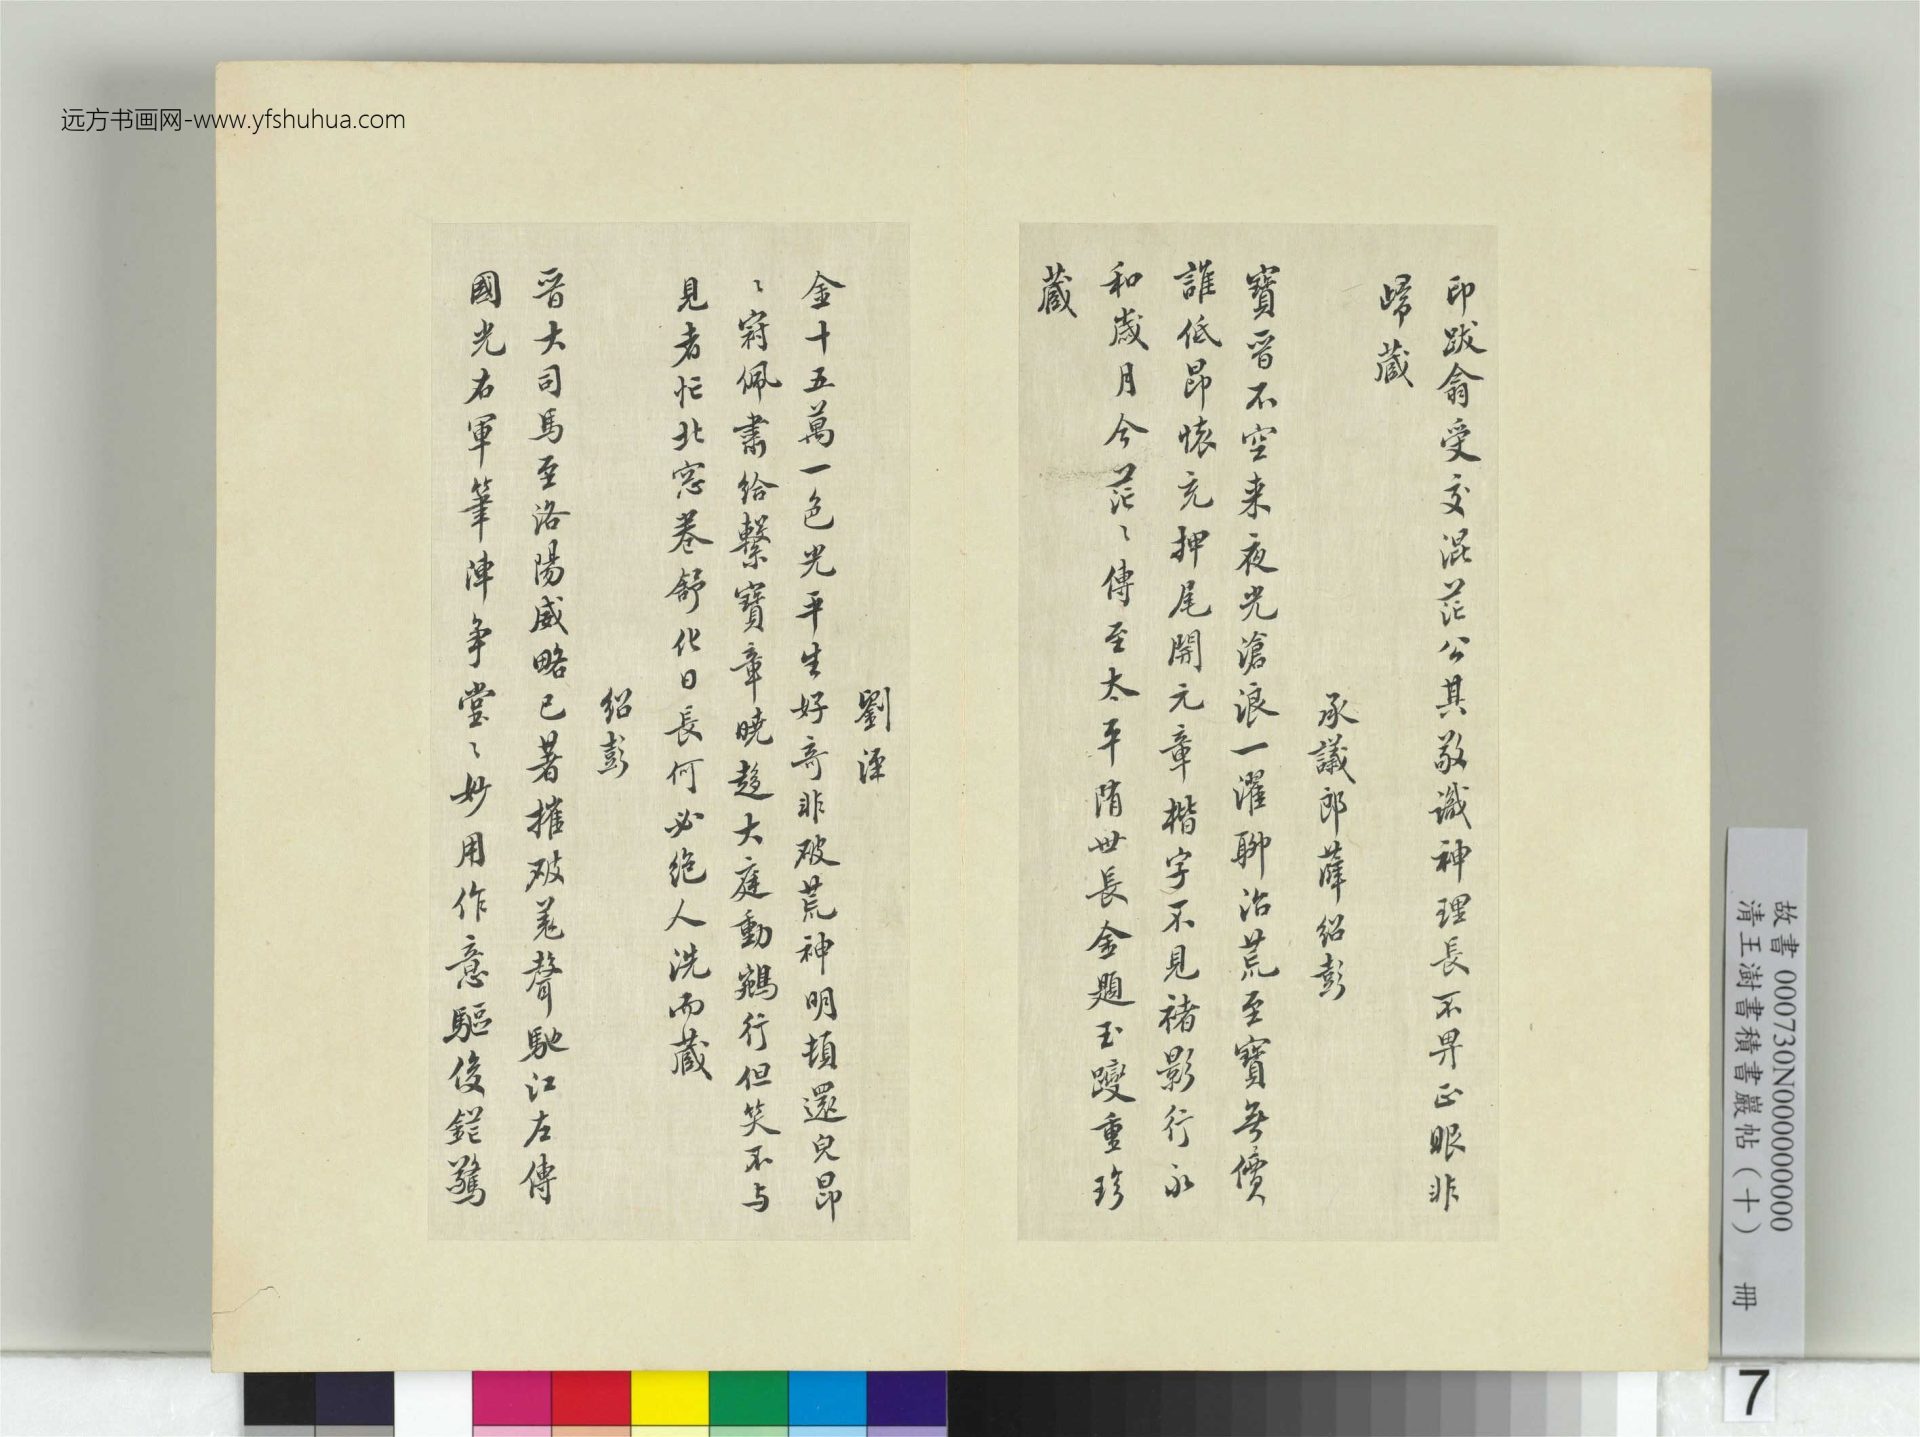 远方书画网-www.yfshuhua.com
印跋翕受交混茫公其敬識神理長不畀正眼非
歸藏
承議郎薛紹彭
寶晉不空来夜光滄浪一濯聊治荒至寶無價
誰低昂懷充押尾開元章楷字不見褚影行永
和歲月今茫〻傳至太平隋世長金題玉躞重珍
藏
劉涇
金十五萬一色光平生好奇非破荒神明頓還兒昂
〻寶佩書給繫寶章曉趨大庭動鵷行但笑不与
見者忙北窓卷舒化日長何必絶人洗而藏
紹彭
晉大司馬至洛陽威略已著摧破羌聲馳江左傳
國光右軍筆陣爭堂〻妙用作意驅俊鋩驚
故書 000730N000000000
清王澍書積書巖帖（十） 冊
7